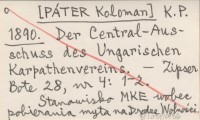 [PÁTER Koloman] K.P.
1890. Der Central-Aus-
schuss des Ungarischen
Karpathenvereins. – Zipser
Bote 28, nr 4: 1-2.
Stanowisko MKE wobec
pobierania myta na Drodze Wolności.